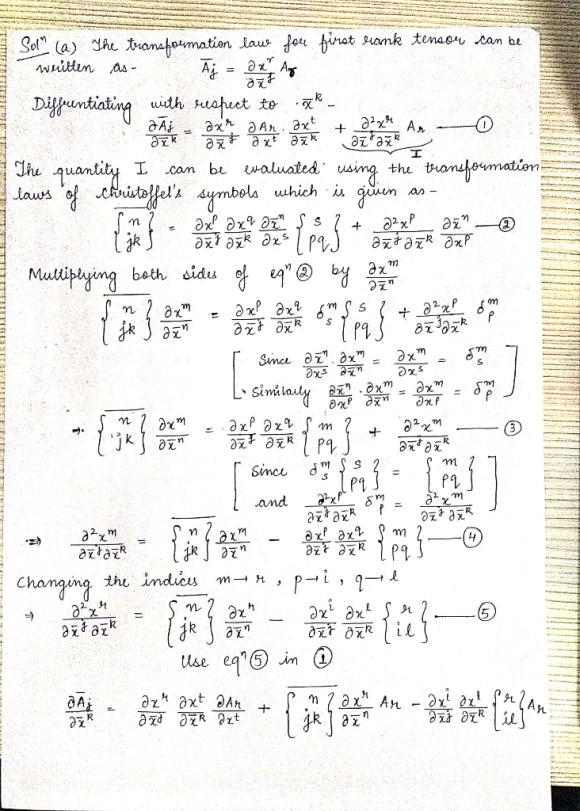 Solⁿ (a) The transformation law for first rank tensor can be
written as - A̅_j = ∂x^r/∂x̅^j A_r
Differentiating with respect to x̅^k -
∂A̅_j/∂x̅^k = ∂x^r/∂x̅^j ∂A_r/∂x^t . ∂x^t/∂x̅^k + ∂²x^r/∂x̅^j∂x̅^k A_r — ①
I
The quantity I can be evaluated using the transformation
laws of christoffel's symbols which is given as -
\overline{{n jk}} = ∂x^p/∂x̅^j ∂x^q/∂x̅^k ∂x̅^n/∂x^s {s pq} + ∂²x^p/∂x̅^j∂x̅^k ∂x̅^n/∂x^p — ②
Multiplying both sides of eqⁿ ② by ∂x^m/∂x̅^n
\overline{{n jk}} ∂x^m/∂x̅^n = ∂x^p/∂x̅^j ∂x^q/∂x̅^k δ^m_s {s pq} + ∂²x^p/∂x̅^j∂x̅^k δ^m_p
[ Since ∂x̅^n/∂x^s . ∂x^m/∂x̅^n = ∂x^m/∂x^s = δ^m_s
Similarly ∂x̅^n/∂x^p . ∂x^m/∂x̅^n = ∂x^m/∂x^p = δ^m_p ]
⇒ \overline{{n jk}} ∂x^m/∂x̅^n = ∂x^p/∂x̅^j ∂x^q/∂x̅^k {m pq} + ∂²x^m/∂x̅^j∂x̅^k — ③
[ Since δ^m_s {s pq} = {m pq}
and ∂²x^p/∂x̅^j∂x̅^k δ^m_p = ∂²x^m/∂x̅^j∂x̅^k ]
⇒ ∂²x^m/∂x̅^j∂x̅^k = \overline{{n jk}} ∂x^m/∂x̅^n - ∂x^p/∂x̅^j ∂x^q/∂x̅^k {m pq} — ④
Changing the indices m→r , p→i , q→l
⇒ ∂²x^r/∂x̅^j∂x̅^k = \overline{{n jk}} ∂x^r/∂x̅^n - ∂x^i/∂x̅^j ∂x^l/∂x̅^k {r il} — ⑤
Use eqⁿ ⑤ in ①
∂A̅_j/∂x̅^k = ∂x^r/∂x̅^j ∂x^t/∂x̅^k ∂A_r/∂x^t + \overline{{n jk}} ∂x^r/∂x̅^n A_r - ∂x^i/∂x̅^j ∂x^l/∂x̅^k {r il} A_r